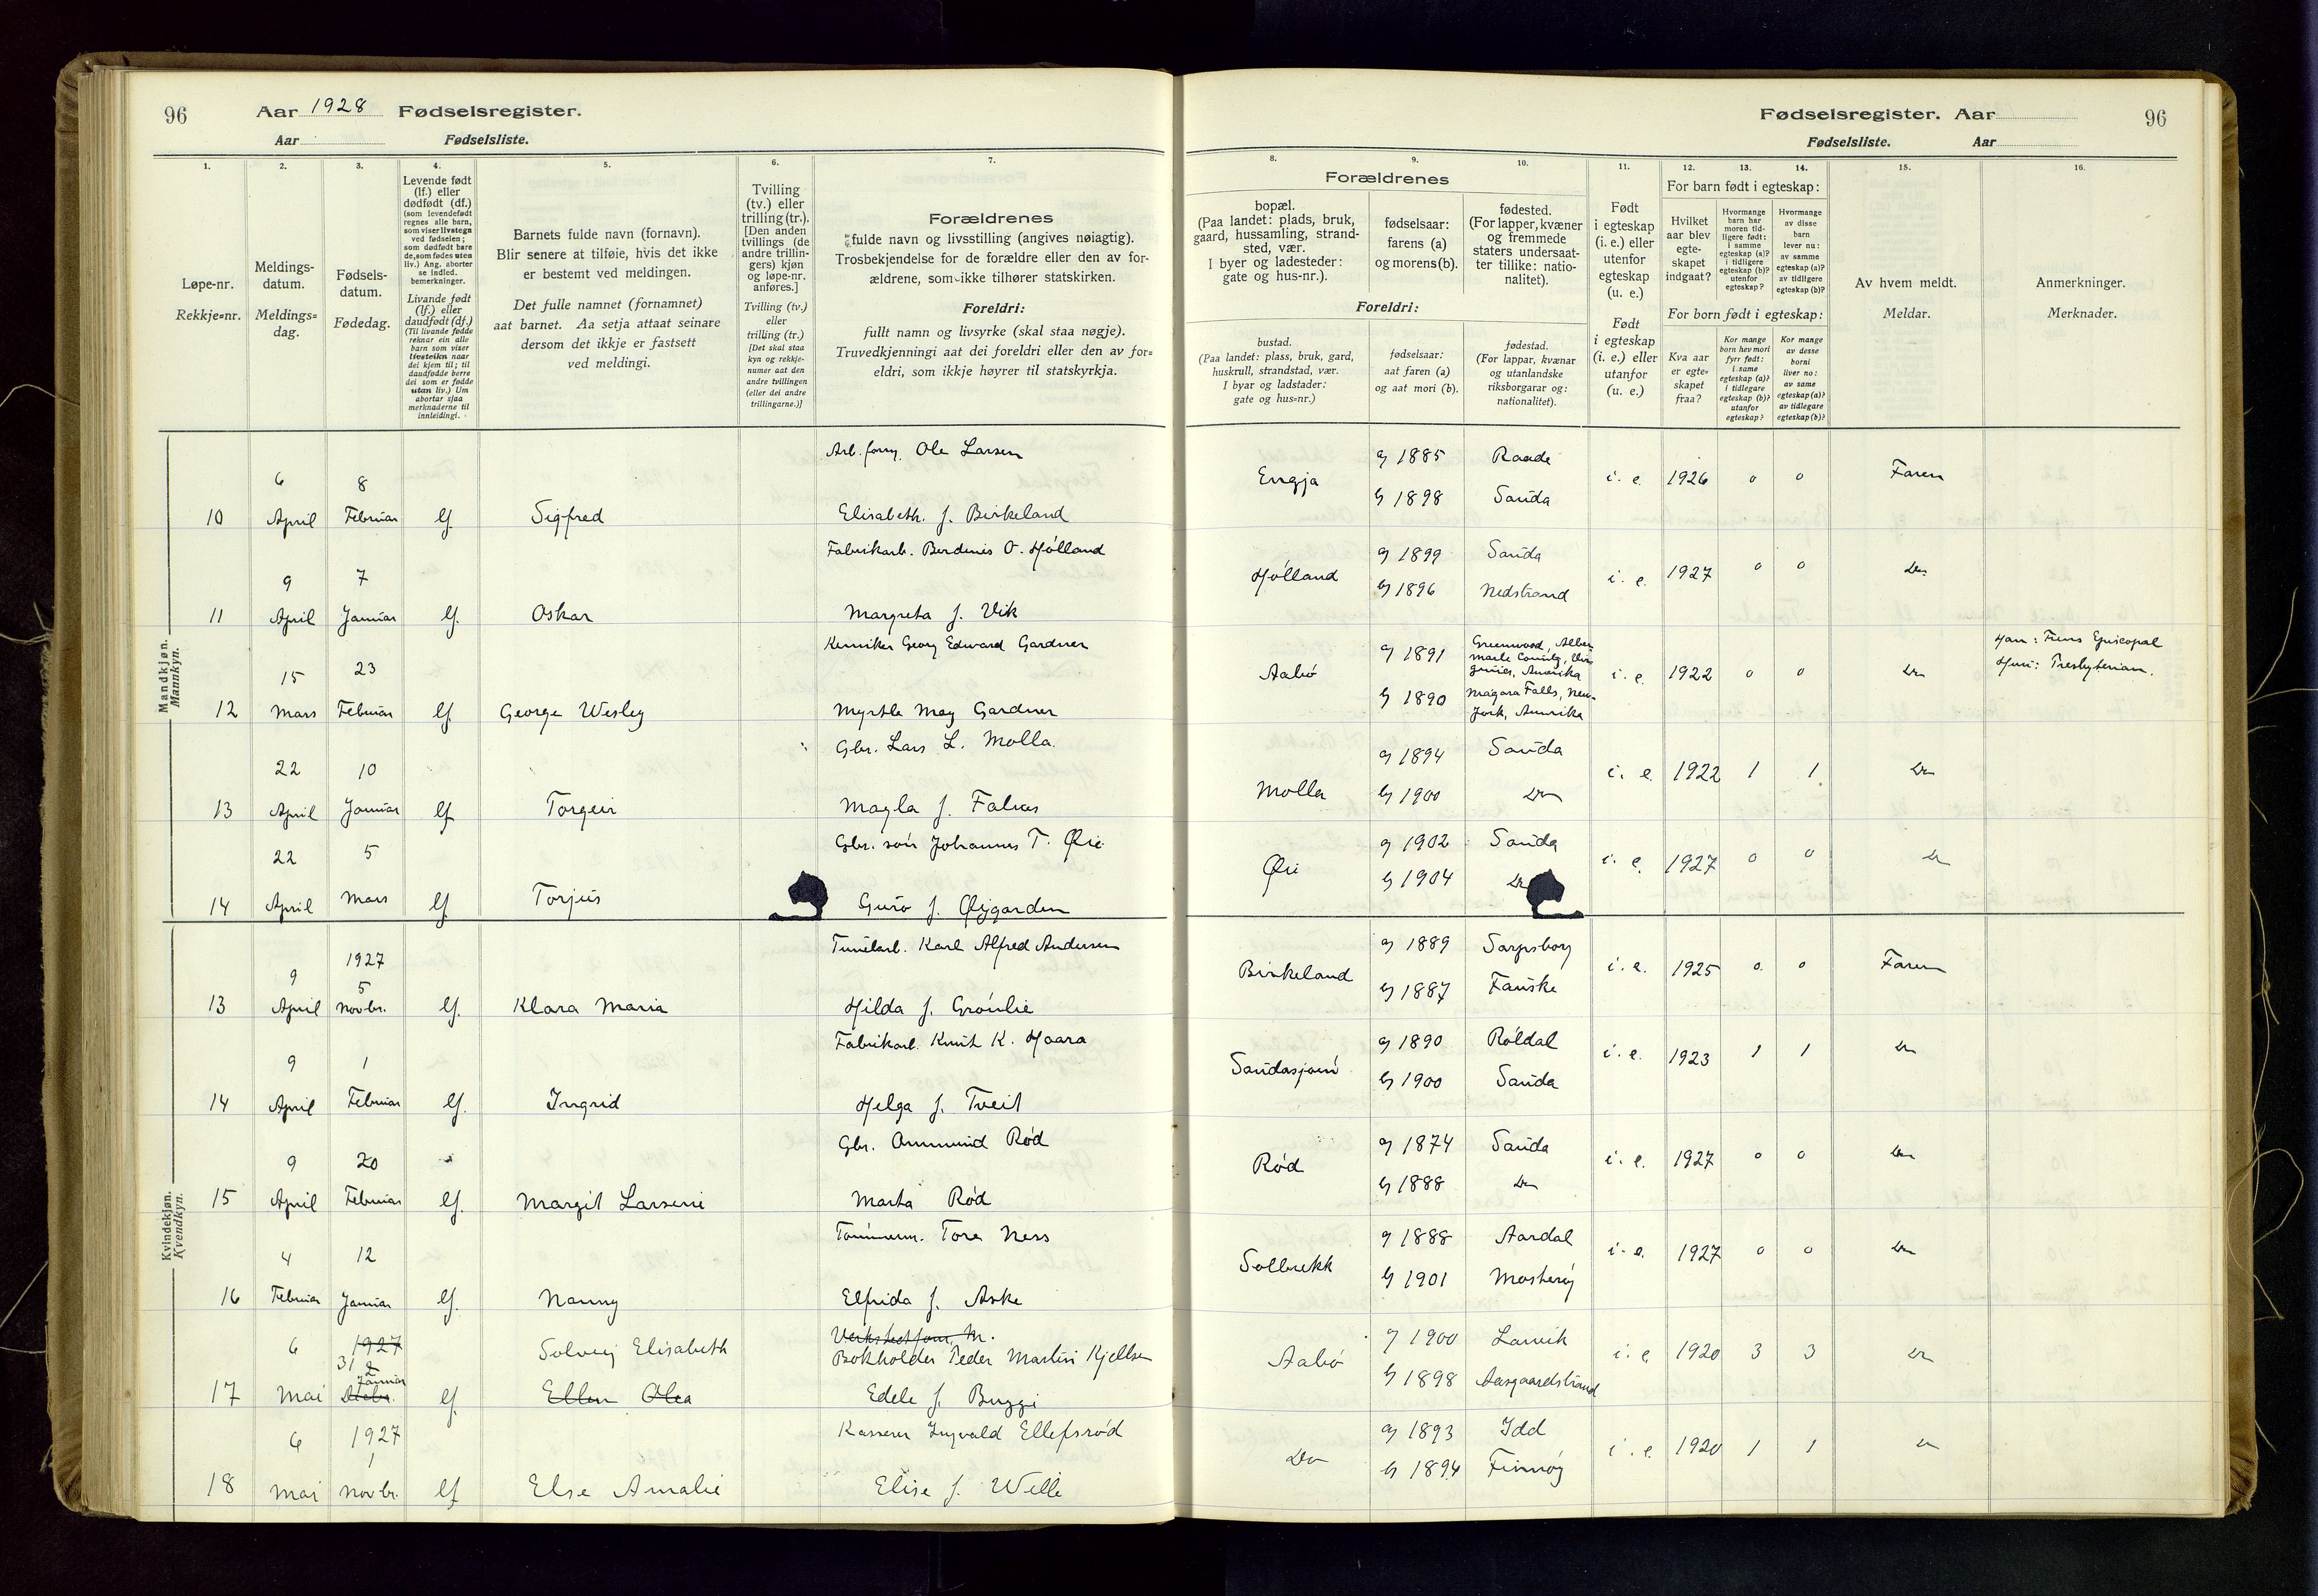 96
Aar 1928 Fødselsregister.
Aar Fødselsliste.
1.
2.
3.
4.
5.
6.
7.
Løpe-nr.
Rekkje=nr.
Meldings-
datum.
Meldings=
dag.
Fødsels-
datum.
Fødedag.
Levende født
(lf.) eller
dødfødt (df.)
(som levendefødt
regnes alle barn,
som viser livstegn
ved fødselen;
som dødfødt bare
de, som fødes uten
liv.) Ang. aborter
se indled.
bemerkninger.
Livande født
(lf.) eller
daudfødt (df.)
(Til livande fødde
reknar ein alle
barn som viser
livsteikn naar
dei kjem til; til
daudfødde berre
dei som er fødde
utan liv.) Um
abortar sjaa
merknaderne til
innleidingi.
Barnets fulde navn (fornavn).
Blir senere at tilføie, hvis det ikke
er bestemt ved meldingen.
Det fulle namnet (fornamnet)
aat barnet. Aa setja attaat seinare
dersom det ikkje er fastsett
ved meldingi.
Tvilling
(tv.) eller
trilling (tr.).
[Den anden
tvillings (de
andre trillin-
gers) kjøn
og løpe-nr.
anføres.]
Tvilling (tv.)
eller
trilling (tr.)
[Det skal staa
kyn og rekkje-
numer aat den
andre tvillingen
(eller dei andre
trillingarne.)]
Forældrenes
fulde navn og livsstilling (angives nøiagtig).
Trosbekjendelse for de forældre eller den av for-
ældrene, som ikke tilhører statskirken.
Foreldri:
fullt namn og livsyrke (skal staa nøgje).
Truvedkjenningi aat dei foreldri eller den av for=
eldri, som ikkje høyrer til statskyrkja.
Mandkjøn.
Mannkyn.
Arb.form. Ole Larsen
6 8
10 April Februar lf. Sigfred Elisabeth f. Birkeland
Fabrikarb. Berdinis O. Hølland
9 7
11 April Januar lf. Oskar Margreta f. Vik
Kemiker Georg Edward Gardner
15 23
12 Mars Februar lf. George Wesley Myrtle May Gardner
Gbr. Lars L. Molla.
22 10
13 April Januar lf Torgeir Magla f. Falnes
Gbr. søn Johannes T. Øie
22 5
14 April Mars lf. Torjus Guro f. Øigarden
Kvindekjøn.
Kvendkyn.
Tunelarb. Karl Alfred Andersen
1927
9 5
13 April Novbr. lf. Klara Maria Hilda f. Grønlie
Fabrikarb. Knut K. Haara
9 1
14 April Februar lf. Ingrid Helga f. Tveit
Gbr. Ommund Rød
9 20
15 April Februar lf. Margit Larsine Marta Rød
Tømmerm. Tore Ness
4 12
16 Februar Januar lf. Nanny Elfrida f. Aske
Verkstedform. M.
6 1927 Solveig Elisabeth Bokholder Peder Martin Kjellsen
31 2
Januar
17 Mai Decbr. lf. Ellen Olea Edele f. Bugge
Kasserer Ingvald Ellefsrød
6 1927
1
18 Mai Novbr. lf Else Amalie Elise f. Wille
Fødselsregister. Aar
96
Fødselsliste. Aar
8.
9.
10.
11.
12.
13.
14.
15.
16.
Forældrenes
bopæl.
(Paa landet: plads, bruk,
gaard, hussamling, strand-
sted, vær.
I byer og ladesteder:
gate og hus-nr.).
fødselsaar:
farens (a)
og morens (b).
fødested.
(For lapper, kvæner
og fremmede
staters undersaat-
ter tillike: natio-
nalitet).
Foreldri:
bustad.
(Paa landet: plass, bruk, gard,
huskrull, strandstad, vær.
I byar og ladstader:
gate og hus=nr.)
fødselsaar:
aat faren (a)
og aat mori (b).
fødestad.
(For lappar, kvænar
og utanlandske
riksborgarar og:
nationalitet).
Født
i egteskap
(i. e.) eller
utenfor
egteskap
(u. e.)
Født
i egteskap
(i. e.) eller
utanfor
(u. e.)
For barn født i egteskap:
Hvilket
aar blev
egte-
skapet
indgaat?
Hvormange
barn har
moren tid-
ligere født:
i samme
egteskap (a)?
i tidligere
egteskap (b)?
utenfor
egteskap?
Hvormange
av disse
barn
lever nu:
av samme
egteskap (a)?
av tidligere
egteskap (b)?
For born født i egteskap:
Kva aar
er egte=
skapet
fraa?
Kor mange
born hev mori
fyrr født:
i same
egteskap (a)?
i tidlegare
egteskap (b)?
utanfor
egteskap?
Kor mange
av desse
borni
liver no:
av same
egteskap (a)?
av tidlegare
egteskap (b)?
Av hvem meldt.
Meldar.
Anmerkninger.
Merknader.
Engja a) 1885 Raade i. e. 1926 0 0 Faren
b) 1898 Sauda
Hølland a) 1899 Sauda i. e. 1927 0 0 Do
b) 1896 Nedstrand
Aabø a) 1891 Greenwood, Albe-
marle County, Vir-
ginien, Amerika i. e. 1922 0 0 Do
Han: Episcopal
Hun: Presbyterian.
b) 1890 Niagara Falls, New-
York, Amerika
Molla a) 1894 Sauda i. e. 1922 1 1 Do
b) 1900 Do
Øie a) 1902 Sauda i. e. 1927 0 0 Do
b) 1904 Do
Birkeland a) 1889 Sarpsborg i. e. 1925 0 0 Faren
b) 1887 Fauske
Saudasjøen a) 1890 Røldal i. e. 1923 1 1 Do
b) 1900 Sauda
Rød a) 1874 Sauda i. e. 1927 0 0 Do
b) 1888 Do
Solbrekk a) 1888 Aardal i. e. 1927 0 0 Do
b) 1901 Mosterøy
Aabø a) 1900 Larvik i. e. 1920 3 3 Do
b) 1898 Aasgaardstrand
Do a) 1893 Idd i. e. 1920 1 1 Do
b) 1894 Finnøy